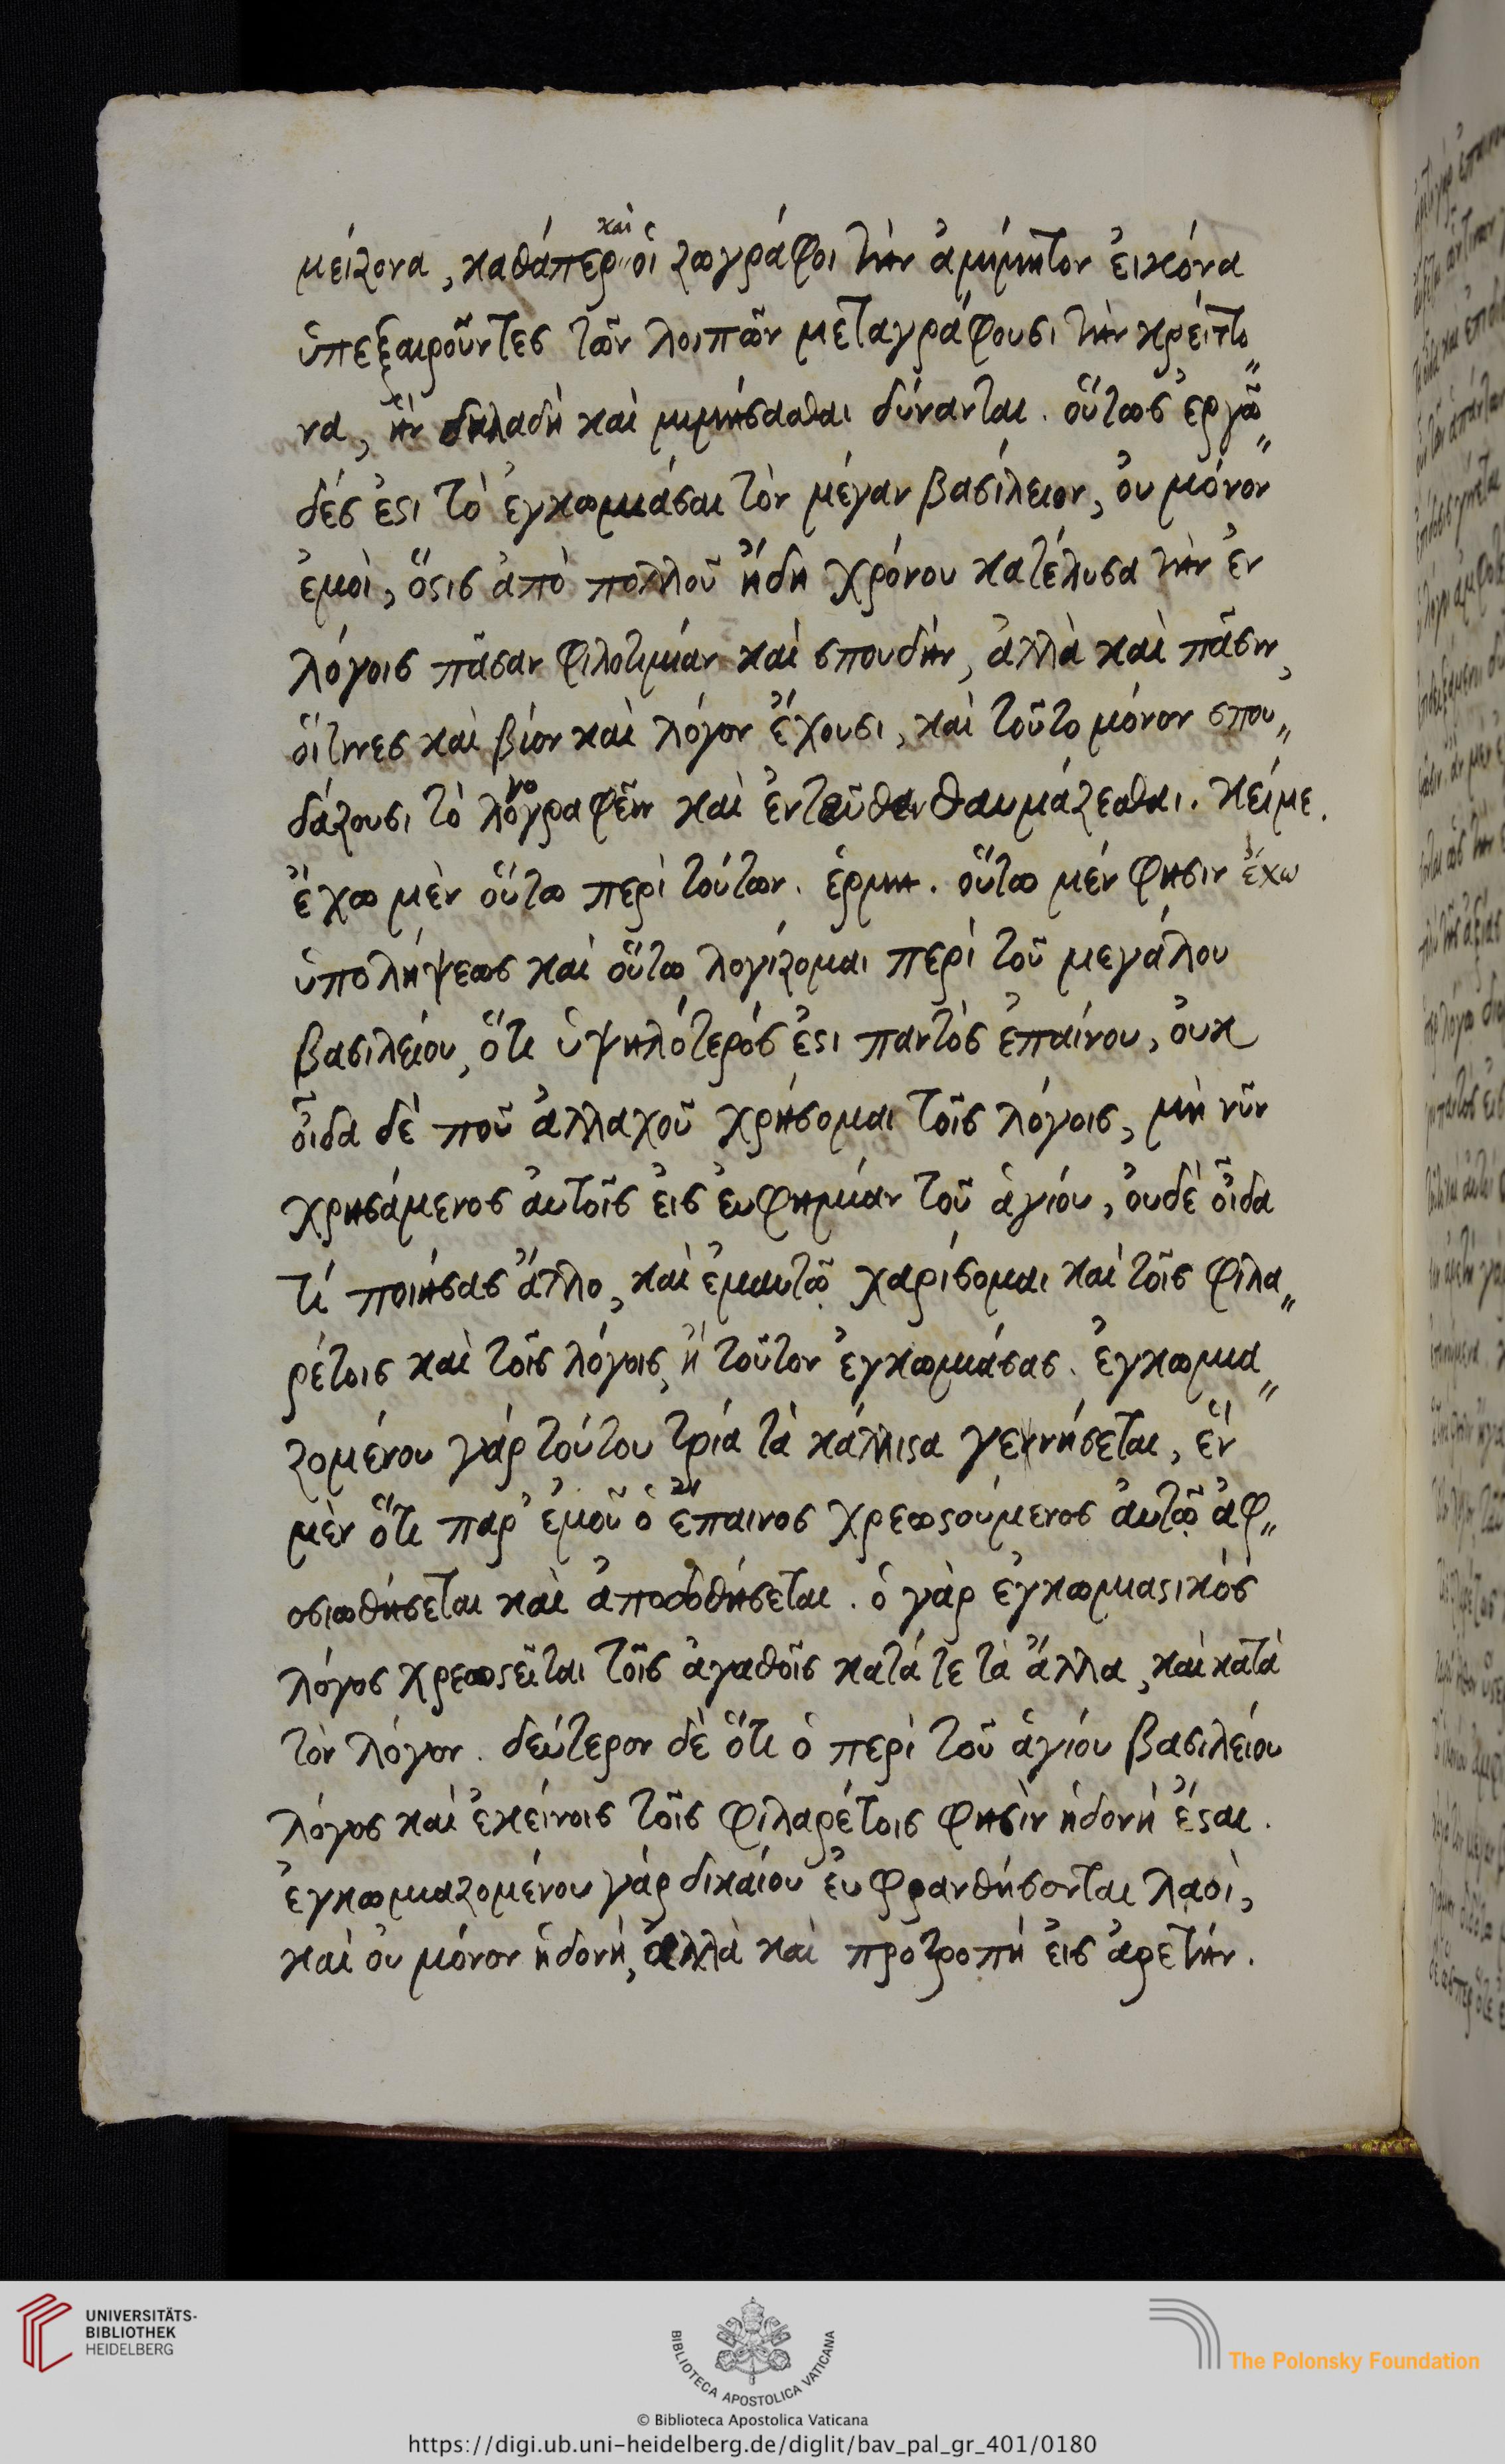 μείζονα, καθάπερ καὶ οἱ ζωγράφοι τὴν ἀμίμητον ἐικόνα
ὑπεξαιροῦντες τῶν λοιπῶν μεταγράφουσι τὴν κρείττο„
να, ἣν δηλαδὴ καὶ μιμήσασθαι δύνανται. οὕτως ἐργῶ„
δές ἐϛι τὸ ἐγκωμιάσαι τὸν μέγαν βασίλειον, ὀυ μόνον
ἐμοὶ, ὅϛις ἀπὸ πολλοῦ ἤδη χρόνου κατέλυσα τὴν ἐν
λόγοις πᾶσαν φιλοτιμίαν καὶ σπουδὴν, ἀλλὰ καὶ πᾶσιν,
ὅιτινες καὶ βίον καὶ λόγον ἔχουσι, καὶ τοῦτο μόνον σπου„
δάζουσι τὸ λογογραφεῖν καὶ ἐντεῦθεν θαυμάζεσθαι. κείμε.
ἔχω μὲν οὕτω περὶ τούτων. ἑρμη. οὕτω μέν φησιν ἔχω
ὑπολήψεως καὶ οὕτω λογίζομαι περὶ τοῦ μεγάλου
βασιλείου, ὅτι ὑψηλότερός ἐϛι παντὸς ἐπαίνου, ὀυκ
ὖιδα δὲ ποῦ ἀλλαχοῦ χρήσομαι τοῖς λόγοις, μὴ νῦν
χρησάμενος ἀυτοῖς ἐις ἐυφημίαν τοῦ ἁγίου, ὀυδὲ ὖιδα
τί ποιήσας ἄλλο, καὶ ἐμαυτῷ χαρίσομαι καὶ τοῖς φιλα„
ρέτοις καὶ τοῖς λόγοις, ἢ τοῦτον ἐγκωμιάσας. ἐγκωμια„
ζομένου γάρ τούτου τρία τὰ κάλλιϛα γεννήσεται, ἓν
μὲν ὅτι παρ' ἐμοῦ ὁ ἔπαινος χρεωϛούμενος ἀυτῷ ἀφ„
οσιωθήσεται καὶ ἀποδοθήσεται. ὁ γὰρ ἐγκωμιαϛικὸς
λόγος χρεωϛεῖται τοῖς ἀγαθοῖς κατά τε τὰ ἄλλα, καὶ κατὰ
τὸν λόγον. δεύτερον δὲ ὅτι ὁ περὶ τοῦ ἁγίου βασιλείου
λόγος καὶ ἐκείνοις τοῖς φιλαρέτοις φησὶν ἡδονὴ ἔϛαι.
ἐγκωμιαζομένου γάρ δικαίου ἐυφρανθήσονται λαοὶ,
καὶ ὀυ μόνον ἡδονὴ, ἀλλὰ καὶ προτροπὴ ἐις ἀρετήν.
UNIVERSITÄTS-
BIBLIOTHEK
HEIDELBERG
BIBLIOTECA APOSTOLICA VATICANA
The Polonsky Foundation
© Biblioteca Apostolica Vaticana
https://digi.ub.uni-heidelberg.de/diglit/bav_pal_gr_401/0180